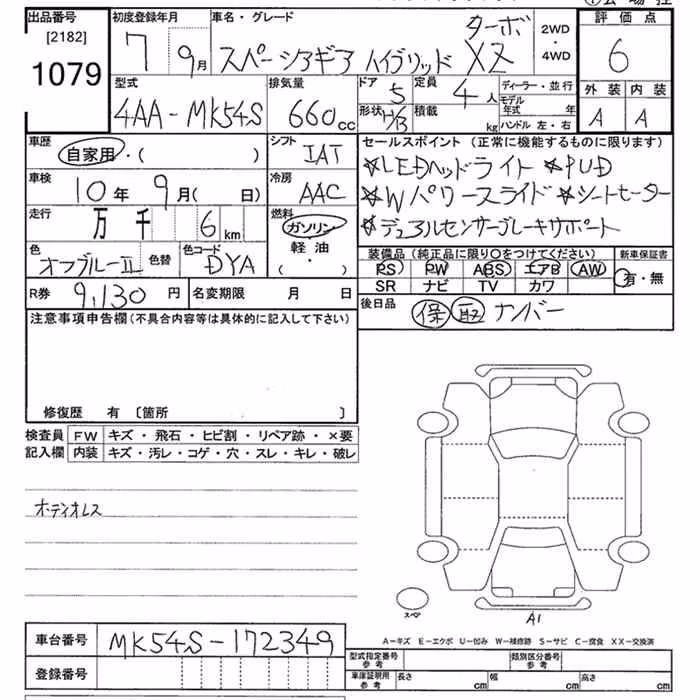 出品番号 初度登録年月 車名・グレード 評価点
[2182] 7 9月 スペーシアギア ハイブリッド ターボ XZ 2WD・4WD 6
1079
型式 排気量 ドア 定員 ディーラー・並行 外装 内装
4AA-MK54S 660cc 5 4人 モデル年式 年 A A
形状 H/B 積載 kg ハンドル 左・右
車歴 シフト セールスポイント(正常に機能するものに限ります)
自家用・( ) IAT ☆LEDヘッドライト ☆PUD
車検 冷房 ☆Wパワースライド ☆シートヒーター
10年 9月( 日) AAC ☆デュアルセンサーブレーキサポート
走行 燃料
万 千 6 km ガソリン 軽油 ( ・ )
色 色替 色コード 装備品(純正品に限り○をつけてください) 新車保証書
オフブルーII DYA PS PW ABS エアB AW 有・無
SR ナビ TV カワ
R券 9,130円 名変期限 月 日 後日品 保 取 ナンバー
注意事項申告欄(不具合内容等は具体的に記入して下さい)
修復歴 有 〔箇所 〕
検査員 FW キズ・飛石・ヒビ割・リペア跡・×要
記入欄 内装 キズ・汚レ・コゲ・穴・スレ・キレ・破レ
オーディオレス
スペア
A1
A-キズ E-エクボ U-凹み W-補修跡 S-サビ C-腐食 XX-交換済
車台番号 MK54S-172349
型式指定番号 参考 類別区分番号 参考
登録番号
車庫証明用 参考 長さ cm 幅 cm 高さ cm